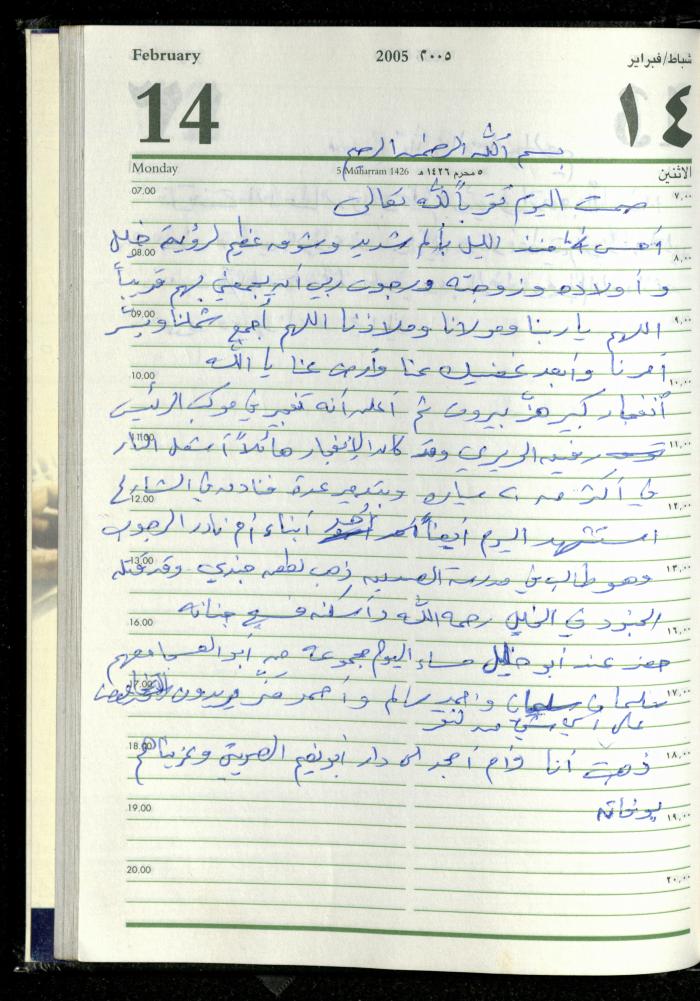 February 2005 ٢٠٠٥ شباط/فبراير
14 ١٤
بسم الله الرحمن الرحيم
Monday 5 Muharram 1426 ٥ محرم ١٤٢٦ هـ الاثنين
07.00 صمت اليوم تقرباً لله تعالى ٧,٠٠
أحس منذ الليل بألم شديد وشوق عظيم لرؤية خليل
08.00 ٨,٠٠
و أولاده وزوجته ورجوت ربي أن يجمعني بهم قريباً
09.00 ٩,٠٠
اللهم يا ربنا ومولانا وملاذنا اللهم اجمع شملنا ويسر
أمرنا وأبعد غضبك عنا وأرض عنا يا الله
10.00 ١٠,٠٠
أنفجار كبير هزّ بيروت ثم أعلن أنه تفجير في موكب الرئيس
11.00 رفيق الحريري وقد كان الإنفجار هائلاً أشعل النار ١١,٠٠
في أكثر من ٢٠ سيارة وبتدمير عدة فنادق في الشارع
12.00 ١٢,٠٠
استشهد اليوم أيضاً أحد أبناء أم نادر الرجوب
13.00 ١٣,٠٠
وهو طالب في مدرسة الصديق ذهب لطعن جندي وقد قتله
الجنود في الخليل رحمه الله وأسكنه فسيح جنانه
16.00 ١٦,٠٠
حضر عند أبو خليل مساء اليوم مجموعة من أبو العسجا معهم
17.00 سليمان وأحمد سالم وأحمد يريدون ١٧,٠٠
على أي شيء
ذهبت أنا وأم أمجد الى دار أبو نعيم وعزيناهم
18.00 ١٨,٠٠
بوفاة
19.00 ١٩,٠٠
20.00 ٢٠,٠٠